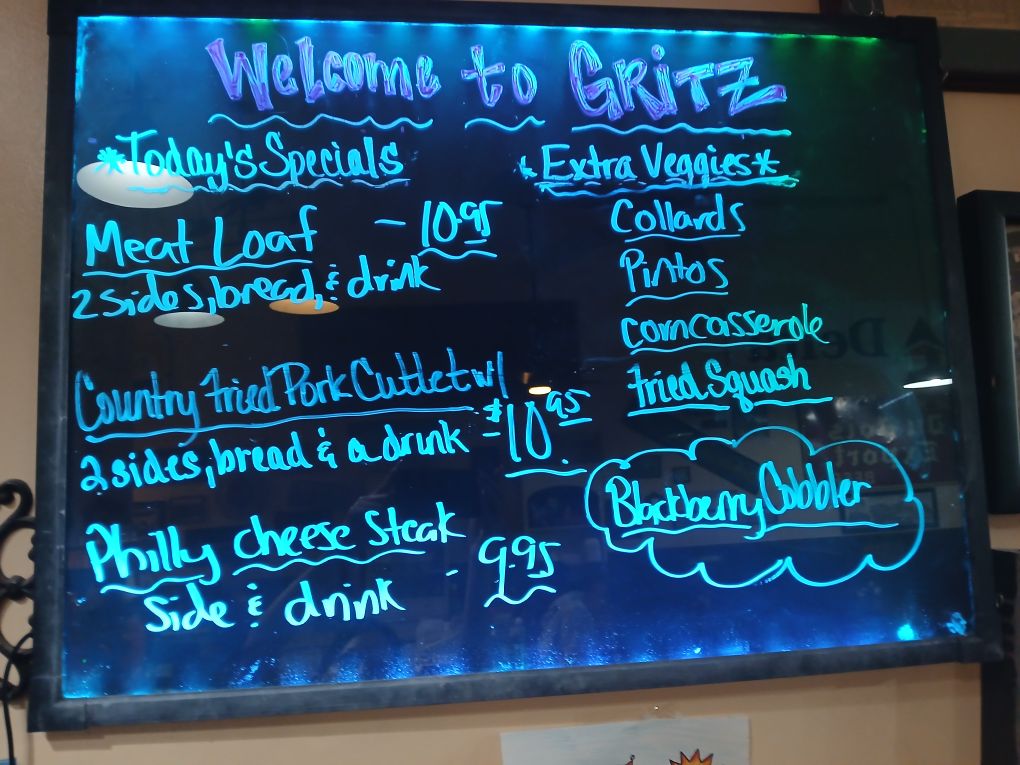 Welcome to GRITZ
*Today's Specials
Meat Loaf - 10.95
2 sides, bread, & drink
Country Fried Pork Cutlet w/
2 sides, bread & a drink - $10.95
Philly Cheese Steak
Side & drink - 9.95
*Extra Veggies*
Collards
Pintos
corn casserole
Fried Squash
Blackberry Cobbler